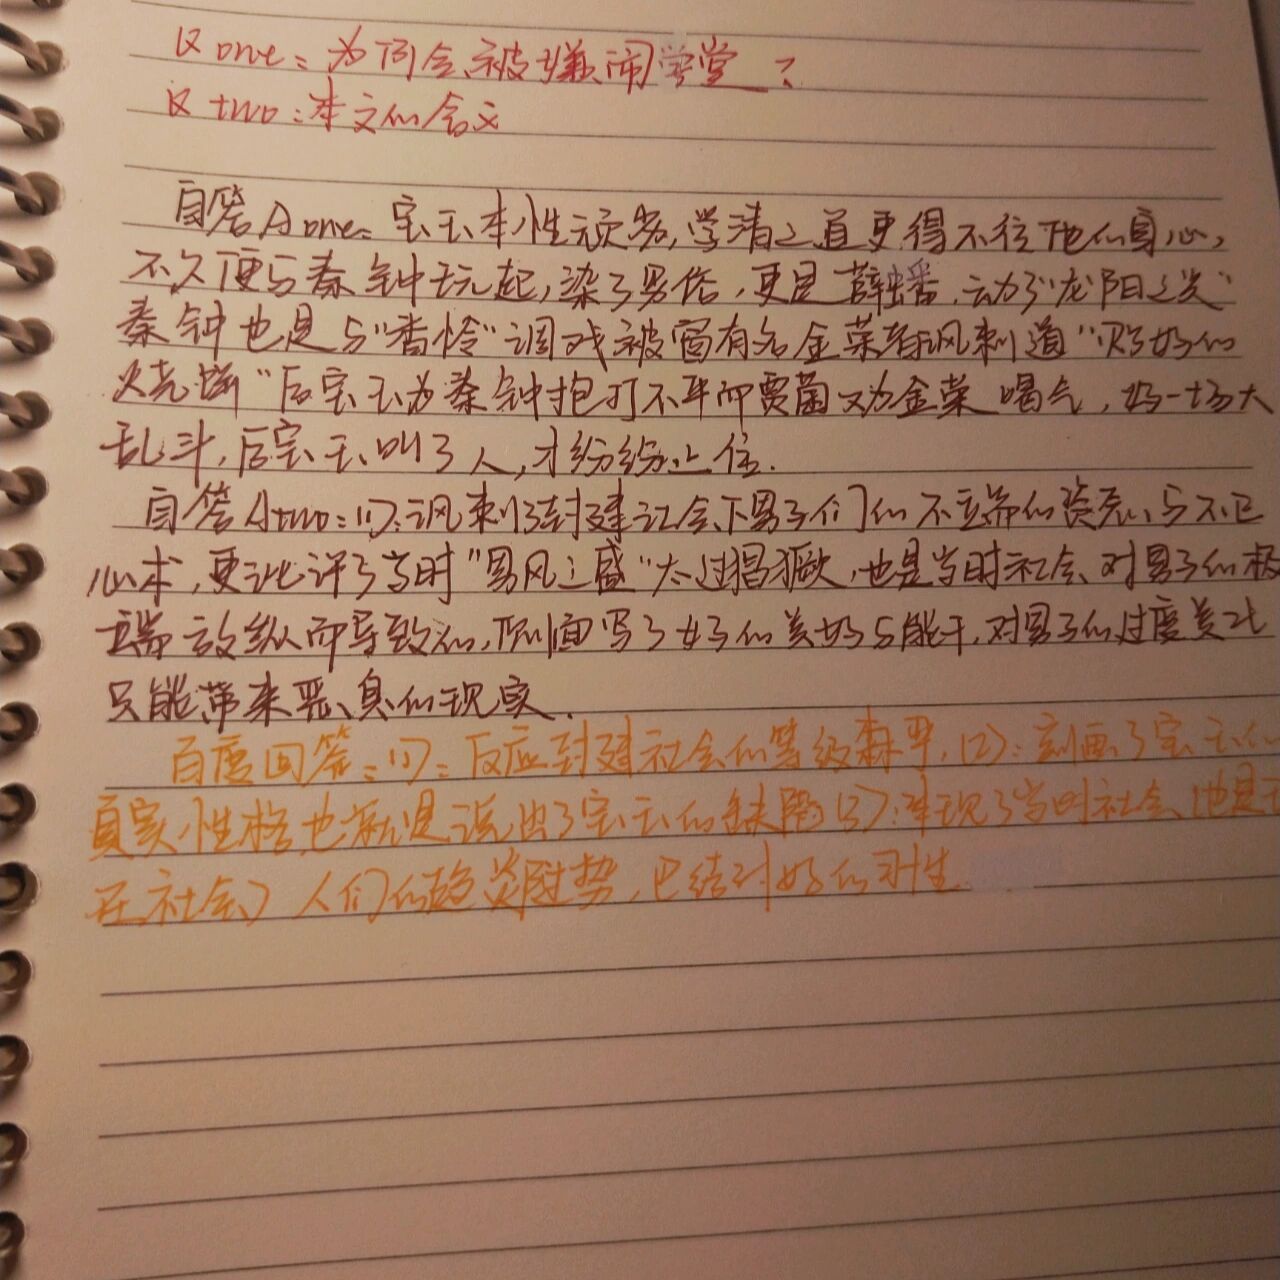 Q one：为何会被嫌闹学堂？
Q two：本文的含义
自答A one：宝玉本性顽劣，学清之道更得不往他的身心，
不久便与秦钟玩起，染了男俗，更是薛蟠，动了"龙阳之兴"
秦钟也是与"香怜"调戏被窗有名金荣者讽刺道"贴好的
烧饼"后宝玉为秦钟抱打不平而贾菌又为金荣喝气，好一场大
乱斗，后宝玉叫了人，才纷纷止住.
自答A two：(1)：讽刺了封建社会下男子们的不端的资态、与不正
心术，更批评了当时"男风之盛"太过猖獗，也是当时社会、对男子的极
端放纵而导致的，侧面写了女子的美好与能干，对男子的过度美化
只能带来恶臭的现实.
百度回答：(1)：反应封建社会的等级森严，(2)：刻画了宝玉的
真实性格也就是说出了宝玉的缺陷(3)：体现了当时社会（也是现
在社会）人们的趋炎附势，巴结讨好的习性